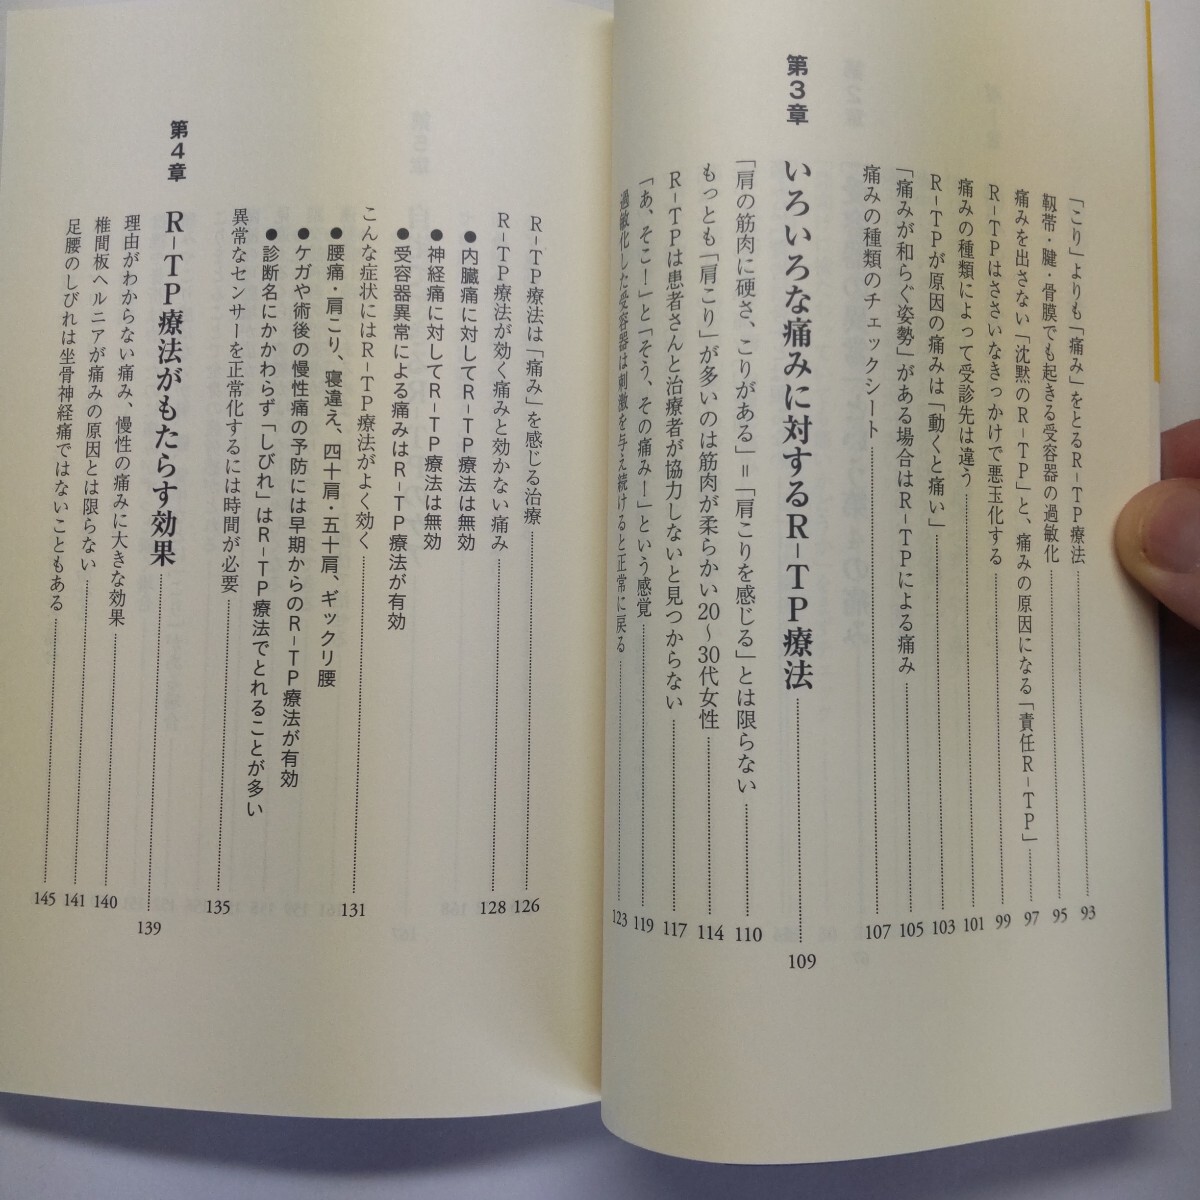 「こり」よりも「痛み」をとるR-TP療法 93
靱帯・腱・骨膜でも起きる受容器の過敏化 95
痛みを出さない「沈黙のR-TP」と、痛みの原因になる「責任R-TP」 97
R-TPはささいなきっかけで悪玉化する 99
痛みの種類によって受診先は違う 101
R-TPが原因の痛みは「動くと痛い」 103
「痛みが和らぐ姿勢」がある場合はR-TPによる痛み 105
痛みの種類のチェックシート 107
第3章 いろいろな痛みに対するR-TP療法 109
「肩の筋肉に硬さ、こりがある」＝「肩こりを感じる」とは限らない 110
もっとも「肩こり」が多いのは筋肉が柔らかい20〜30代女性 114
R-TPは患者さんと治療者が協力しないと見つからない 117
「あ、そこ！」と「そう、その痛み！」という感覚 119
過敏化した受容器は刺激を与え続けると正常に戻る 123
R-TP療法は「痛み」を感じる治療 126
R-TP療法が効く痛みと効かない痛み 128
●内臓痛に対してR-TP療法は無効
●神経痛に対してR-TP療法は無効
●受容器異常による痛みはR-TP療法が有効
こんな症状にはR-TP療法がよく効く 131
●腰痛・肩こり、寝違え、四十肩・五十肩、ギックリ腰
●ケガや術後の慢性痛の予防には早期からのR-TP療法が有効
●診断名にかかわらず「しびれ」はR-TP療法でとれることが多い
異常なセンサーを正常化するには時間が必要 135
第4章 R-TP療法がもたらす効果 139
理由がわからない痛み、慢性の痛みに大きな効果 140
椎間板ヘルニアが痛みの原因とは限らない 141
足腰のしびれは坐骨神経痛ではないこともある 145